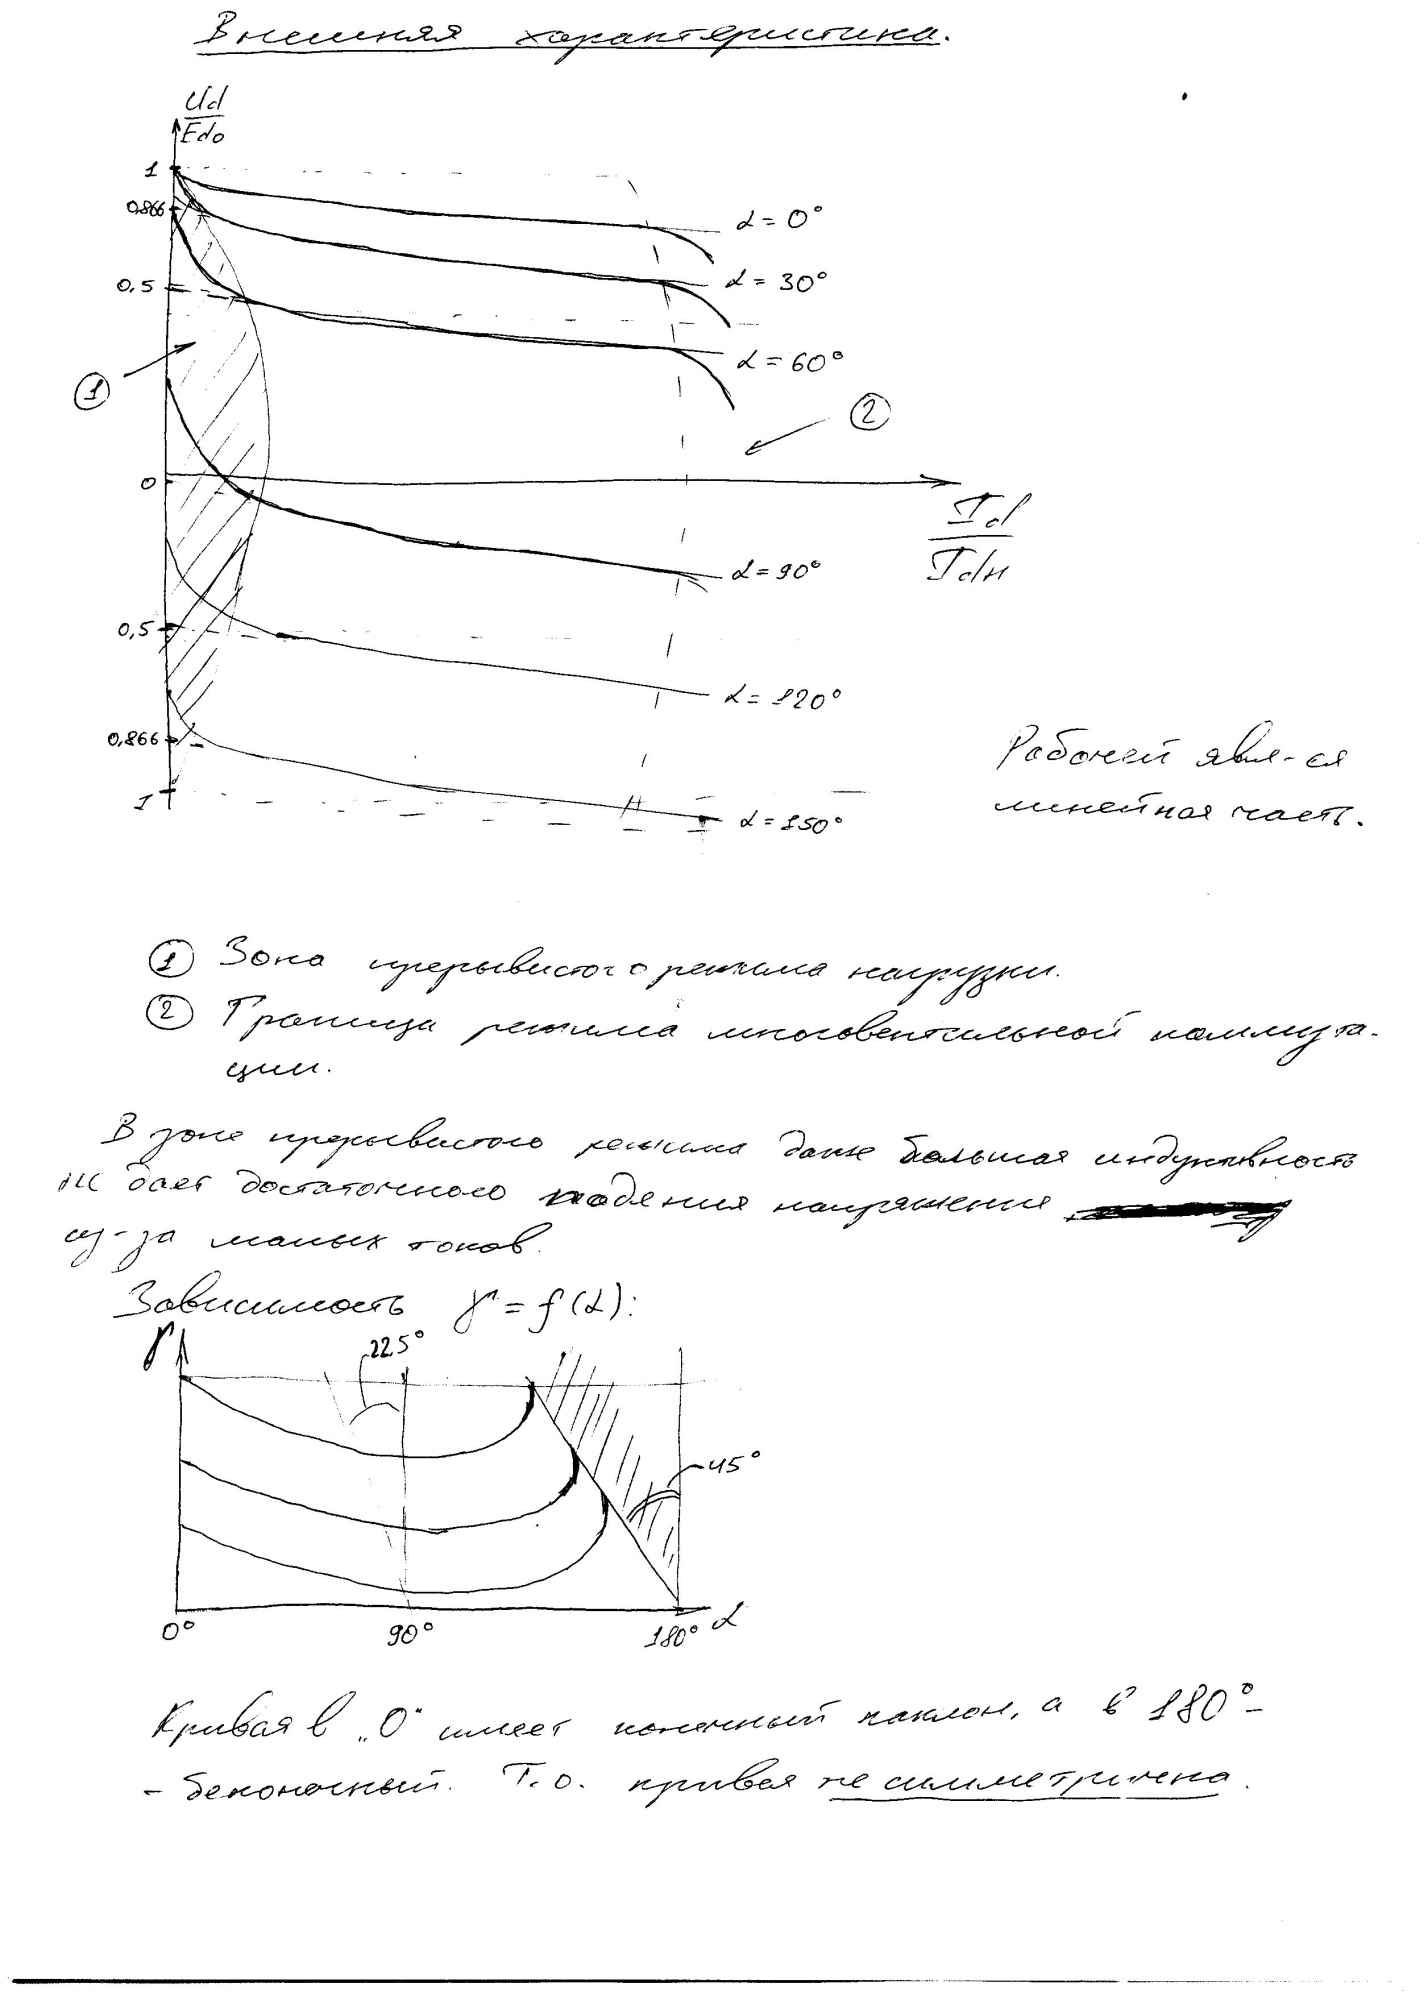 Внешняя характеристика.
Ud
Edo
1
0,866
α = 0°
0,5
α = 30°
α = 60°
1
2
0
Id
Idн
α = 90°
0,5
α = 120°
0,866
Рабочей явл-ся
линейная часть.
1
α = 150°
1 Зона прерывистого режима нагрузки.
2 Граница режима многовентильной коммута-
ции.
В зоне прерывистого режима даже большая индуктивность
не дает достаточного падения напряжения
из-за малых токов.
Зависимость γ = f(α):
γ
22,5°
45°
0°
90°
180°
α
Кривая в „0“ имеет конечный наклон, а в 180° –
– беконечный. Т.о. кривая не симметрична.